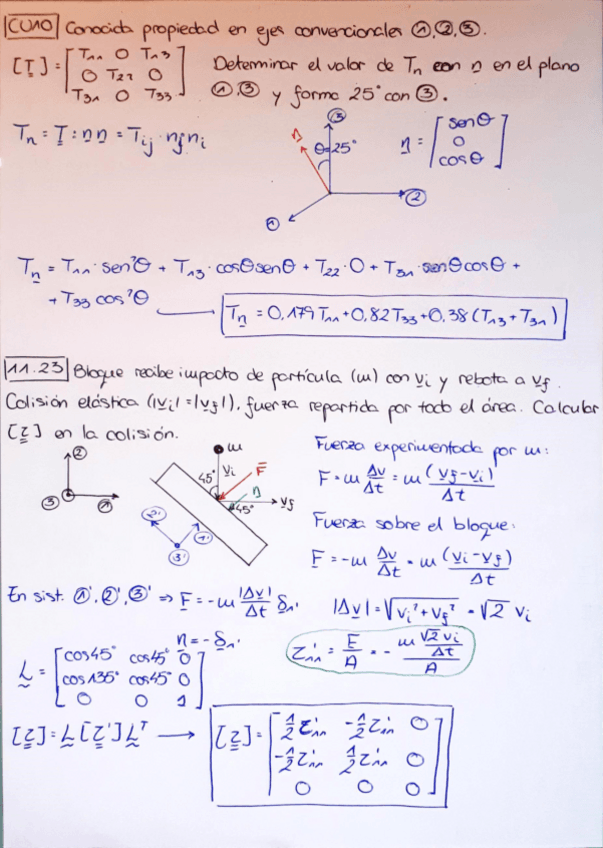 CU10 Conocida propiedad en ejes convencionales ①,②,③.
[T] = [T₁₁ 0 T₁₃
0 T₂₂ 0
T₃₁ 0 T₃₃]
Determinar el valor de Tn con n en el plano
①,③ y forma 25° con ③.
Tn = T : n n = Tij · nj ni
③
n
θ=25°
②
①
n = [senθ
0
cosθ]
Tn = T₁₁ · sen²θ + T₁₃ · cosθ senθ + T₂₂ · 0 + T₃₁ · senθ cosθ +
+ T₃₃ cos²θ
Tn = 0,179 T₁₁ + 0,82 T₃₃ + 0,38 (T₁₃ + T₃₁)
11.23 Bloque recibe impacto de partícula (m) con vi y rebota a vf.
Colisión elástica (|vi| = |vf|), fuerza repartida por todo el área. Calcular
[τ] en la colisión.
②
③
①
m
vi
F
45°
n
45°
vf
②'
①'
③'
Fuerza experimentada por m:
F = m Δv/Δt = m (vf - vi)/Δt
Fuerza sobre el bloque:
F = -m Δv/Δt = m (vi - vf)/Δt
En sist. ①', ②', ③' ⇒ F = -m |Δv|/Δt δ₁'
|Δv| = √(vi² + vf²) = √2 vi
n = -δ₁'
L = [cos45° cos45° 0
cos135° cos45° 0
0 0 1]
τ'₁₁ = F/A = - (m √2 vi/Δt)/A
[τ] = L[τ']Lᵀ ⟶ [τ] = [½τ'₁₁ -½τ'₁₁ 0
-½τ'₁₁ ½τ'₁₁ 0
0 0 0]